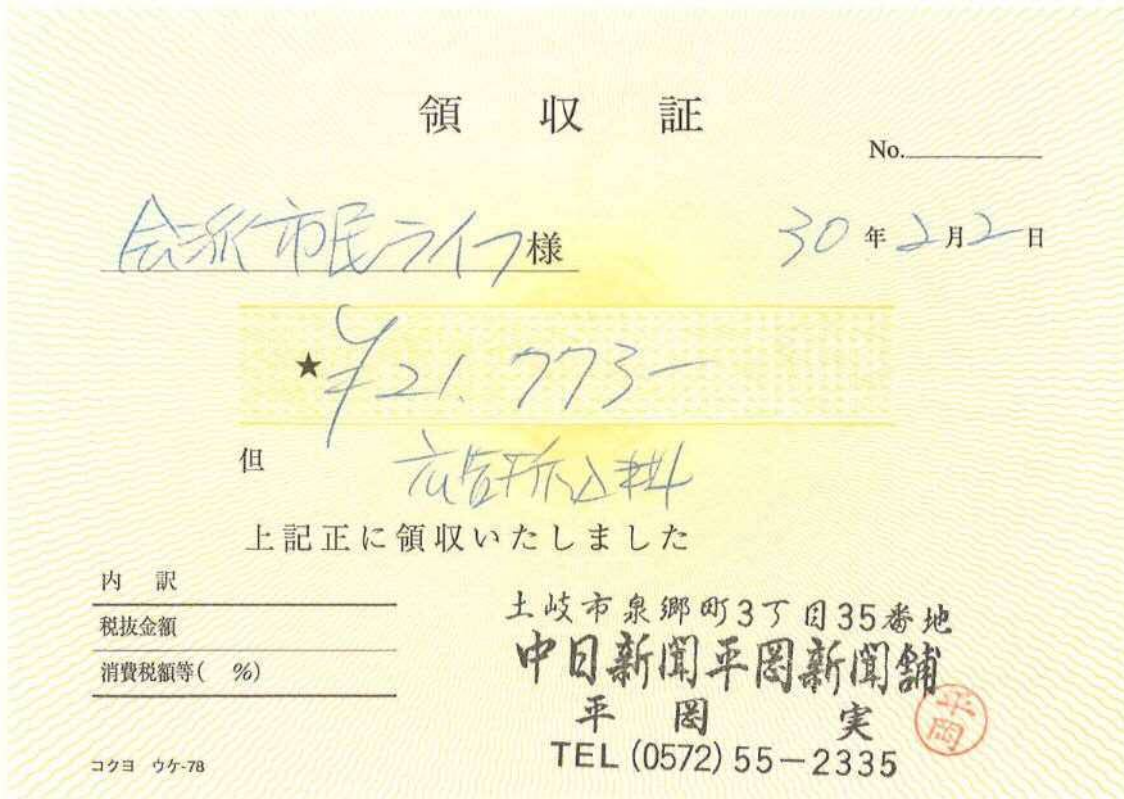 領収証
No.
会派市民ライフ様
30年2月2日
★¥21.773-
但 広告折込料
上記正に領収いたしました
内訳
税抜金額
消費税額等( %)
土岐市泉郷町3丁目35番地
中日新聞平岡新聞舗
平岡 実
平岡
TEL (0572) 55-2335
コクヨ ウケ-78